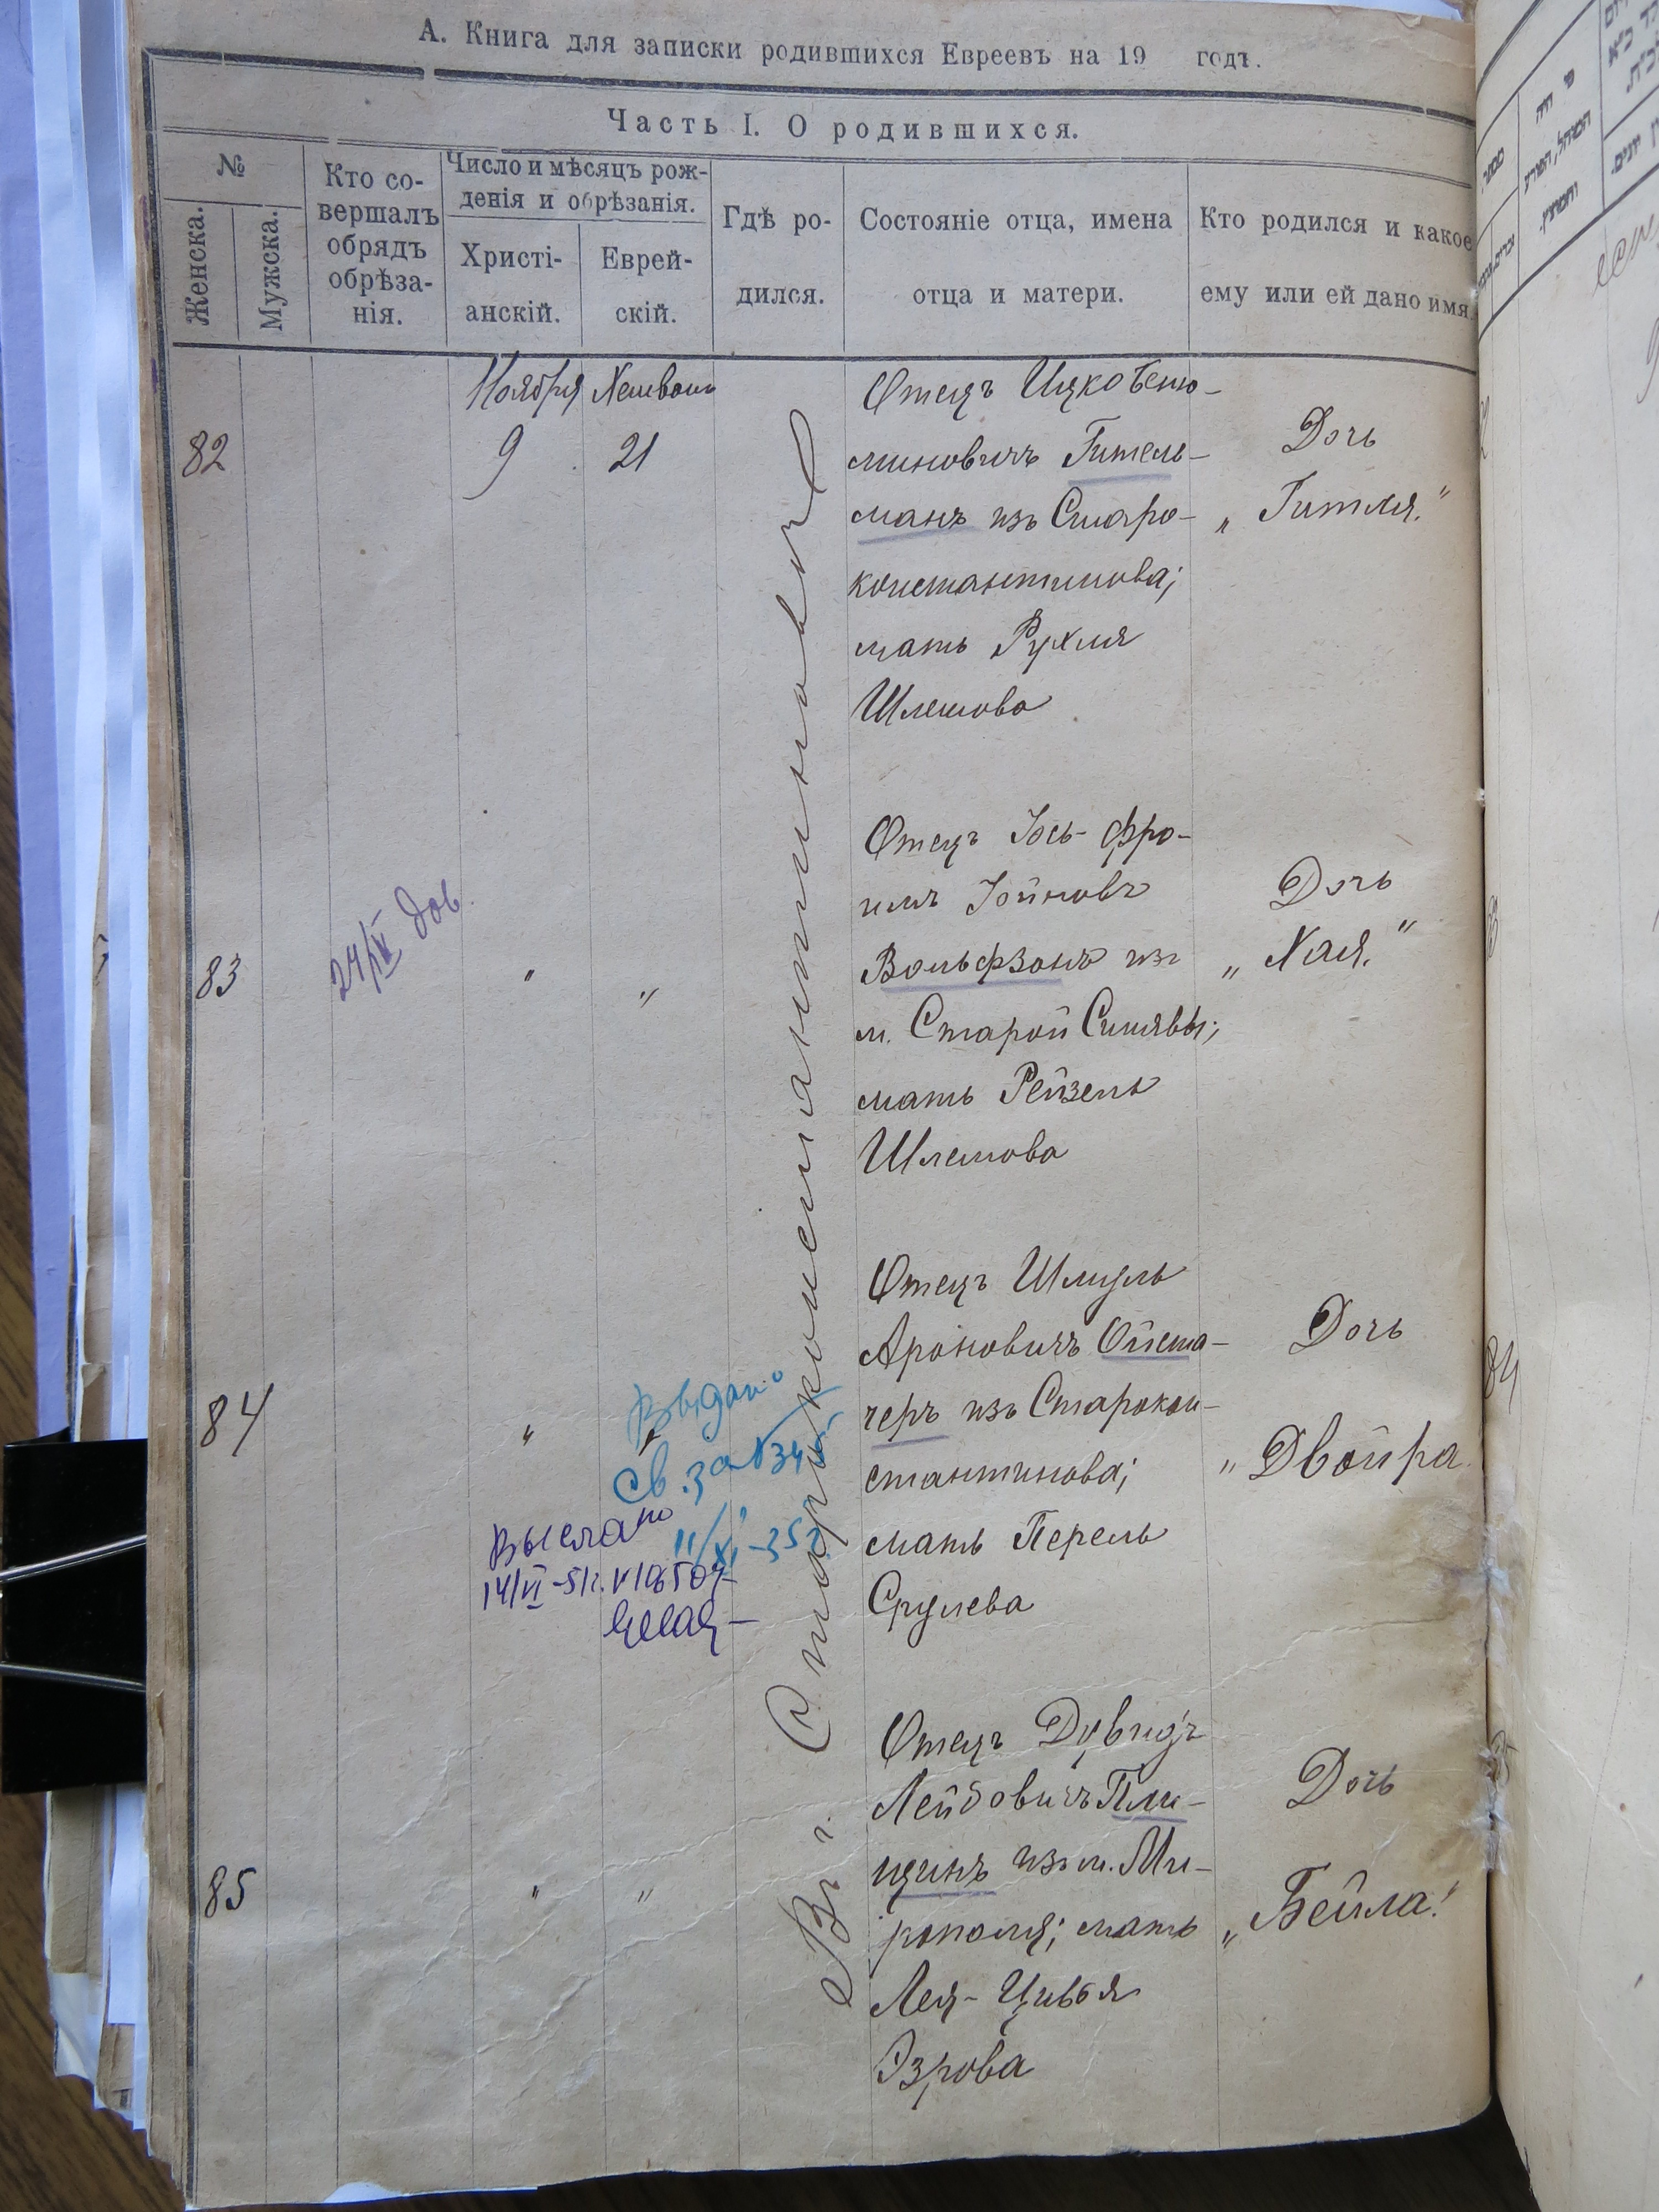 А. Книга для записки родившихся Евреевъ на 19 годъ.
Часть I. О родившихся.
№
Женска.
Мужска.
Кто со-
вершалъ
обрядъ
обрѣза-
нія.
Число и мѣсяцъ рож-
денія и обрѣзанія.
Христі-
анскій.
Еврей-
скій.
Гдѣ ро-
дился.
Состояніе отца, имена
отца и матери.
Кто родился и какое
ему или ей дано имя.
82
Ноября
9
Хешвонъ
21
Отецъ Ицко Беню-
миновичъ Гитель-
манъ изъ Старо-
константинова;
мать Рухля
Шлемова
Дочь
„Гитля."
Въ г. Староконстантиновѣ
83
24/IV дов.
"
"
Отецъ Іось-Фро-
имъ Іойновъ
Вольфзонъ изъ
м. Старой Синявы;
мать Рейзель
Шлемова
Дочь
„Хая."
84
"
"
Выдано
св. за №
11/XI-35 г.
Выслано
14/VI-51г.
Отецъ Шмуль
Ароновичъ Ойста-
черъ изъ Старокон-
стантинова;
мать Перель
Срулева
Дочь
„Двойра
85
"
"
Отецъ Дувидъ
Лейбовичъ Пли-
щинъ изъ м. Ми-
рополя; мать
Лея-Цивья
Эзрова
Дочь
„Бейла."